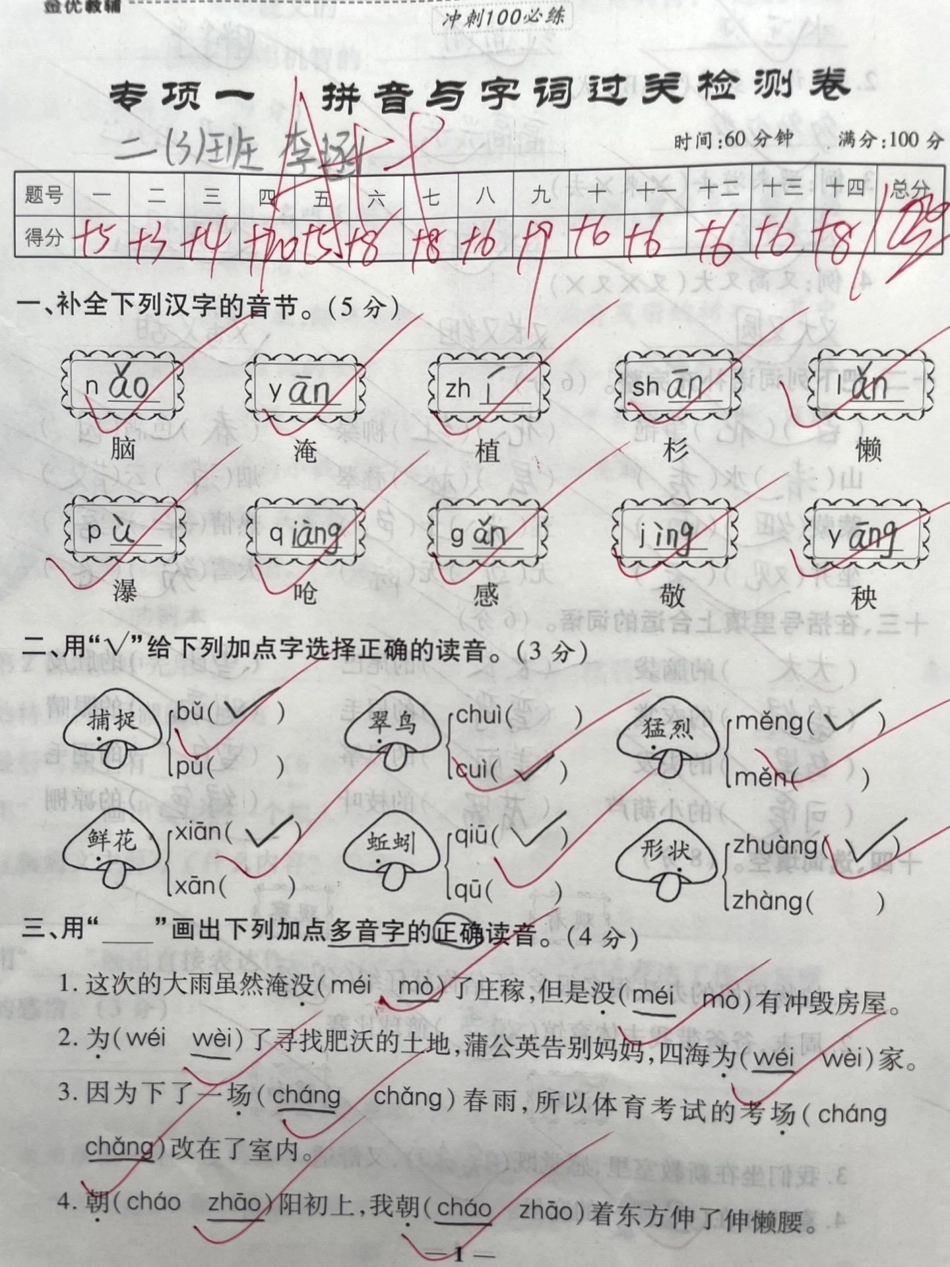 金优教辅
冲刺100必练
专项一 拼音与字词过关检测卷
二(3)班 李涵
时间:60分钟 满分:100分
题号 一 二 三 四 五 六 七 八 九 十 十一 十二 十三 十四 总分
得分 +5 +3 +4 +20 +5 +8 +8 +6 +9 +6 +6 +6 +6 +8
一、补全下列汉字的音节。(5分)
nǎo yān zhí shān lǎn
脑 淹 植 杉 懒
pù qiāng gǎn jìng yāng
瀑 呛 感 敬 秧
二、用“√”给下列加点字选择正确的读音。(3分)
捕捉 bǔ(√) pǔ( ) 翠鸟 chuì( ) cuì(√) 猛烈 měng(√) měn( )
鲜花 xiān(√) xān( ) 蚯蚓 qiū(√) qū( ) 形状 zhuàng(√) zhàng( )
三、用“____”画出下列加点多音字的正确读音。(4分)
1. 这次的大雨虽然淹没(méi mò)了庄稼,但是没(méi mò)有冲毁房屋。
2. 为(wéi wèi)了寻找肥沃的土地,蒲公英告别妈妈,四海为(wéi wèi)家。
3. 因为下了一场(cháng chǎng)春雨,所以体育考试的考场(cháng
chǎng)改在了室内。
4. 朝(cháo zhāo)阳初上,我朝(cháo zhāo)着东方伸了伸懒腰。
— 1 —